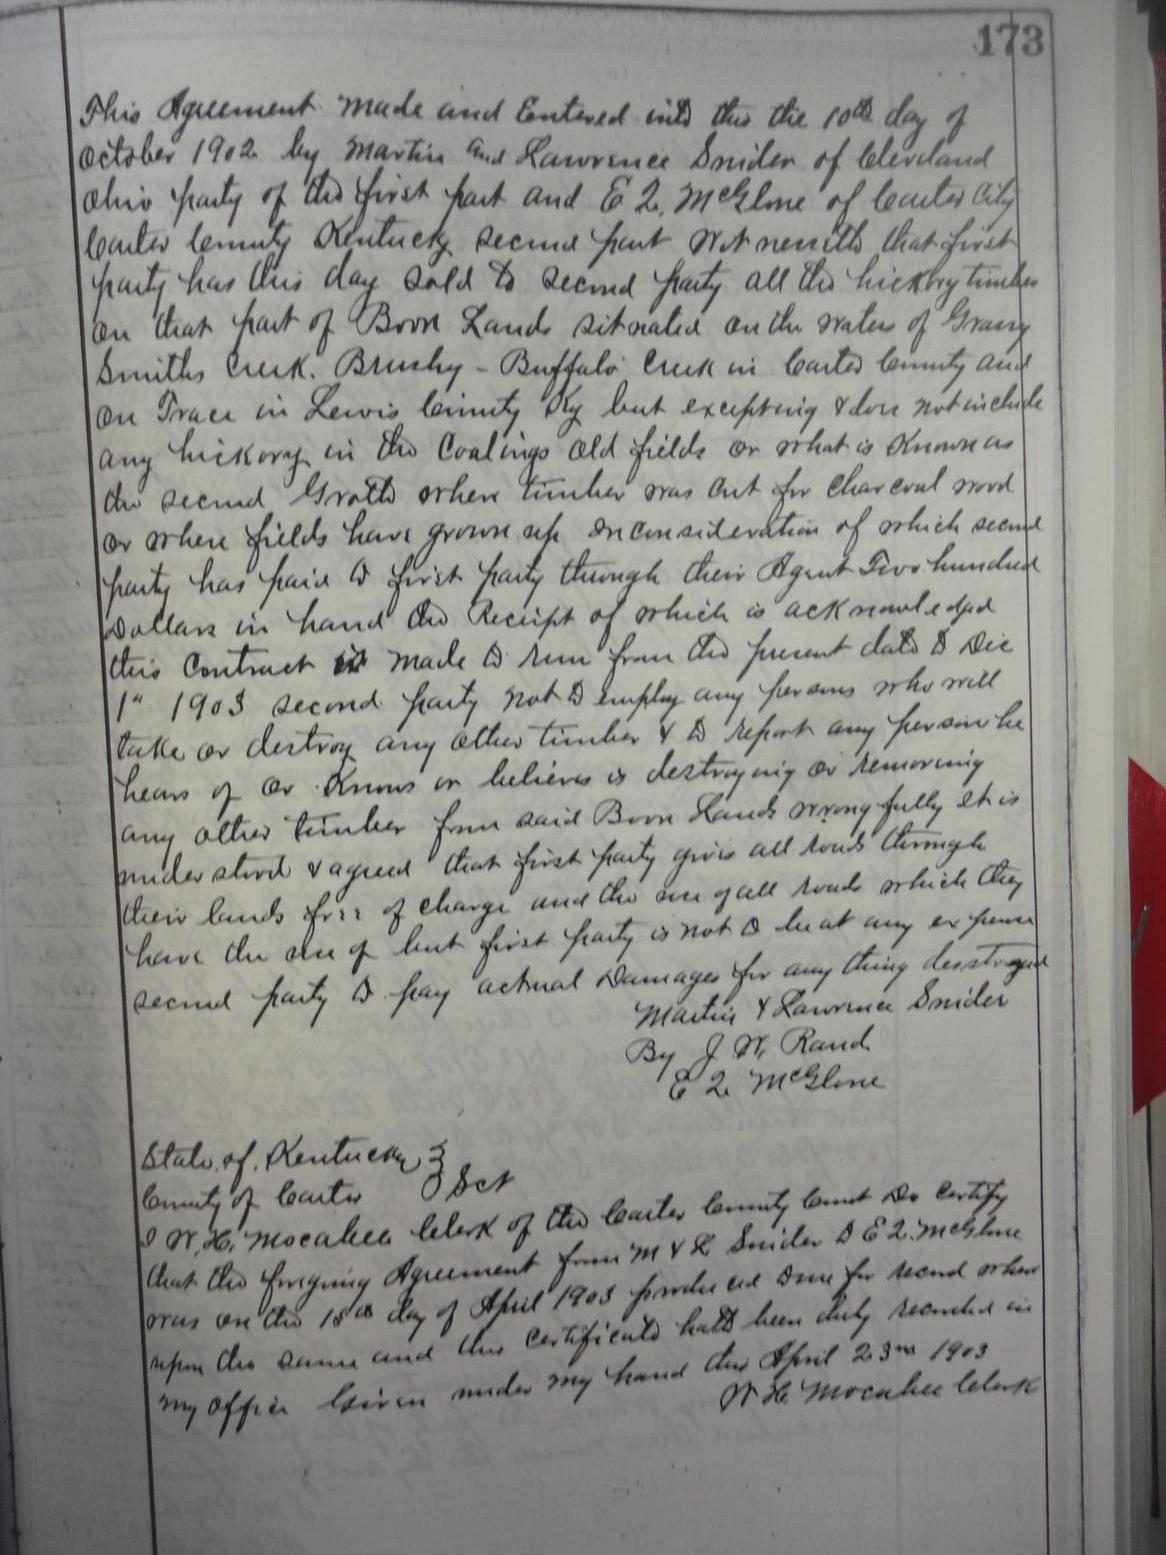 173
This Agreement made and Entered into this the 10th day of
October 1902 by Martin and Lawrence Snider of Cleveland
Ohio party of the first part and E Q. McGlone of Carter City
Carter County Kentucky second part Witnesseth that first
party has this day sold to second party all the hickory timber
on that part of Boon Lands situated on the waters of Grassy
Smiths Creek. Brushy - Buffalo Creek in Carter County and
on Trace in Lewis County Ky but excepting & does not include
any hickory in the Coalings old fields or what is Known as
the second Groth where timber was cut for charcoal wood
or where fields have grown up inconsideration of which second
party has paid to first party through their Agent Two hundred
Dollars in hand the Receipt of which is acknowledged
this Contract is made to run from the present date to Dec
1" 1903 second party not to employ any persons who will
take or destroy any other timber & to report any person he
hears of or Knows or believes is destroying or removing
any other timber from said Boon Lands wrongfully It is
understood & agreed that first party gives all roads through
their lands free of charge and the use of all roads which they
have the use of but first party is not to be at any expense
second party to pay actual Damages for any thing destroyed
Martin & Lawrence Snider
By J W. Rand
E Q McGlone
State of Kentucky
County of Carter Sct
I W. H. Mocabee Clerk of the Carter County Court Do certify
that the foregoing Agreement from M & L Snider to E Q. McGlone
was on the 18th day of April 1903 produced Same for record when
upon the same and this certificate hath been duly recorded in
my office Given under my hand this April 23rd 1903
W H. Mocabee Clerk